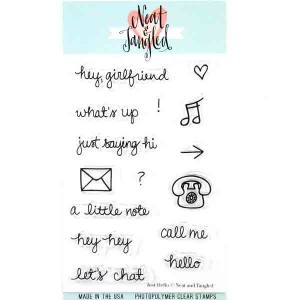 Neat & Tangled
hey, girlfriend
what's up !
just saying hi
?
a little note
call me
hey hey
hello
let's chat
Just Hello © Neat and Tangled
MADE IN THE USA PHOTOPOLYMER CLEAR STAMPS